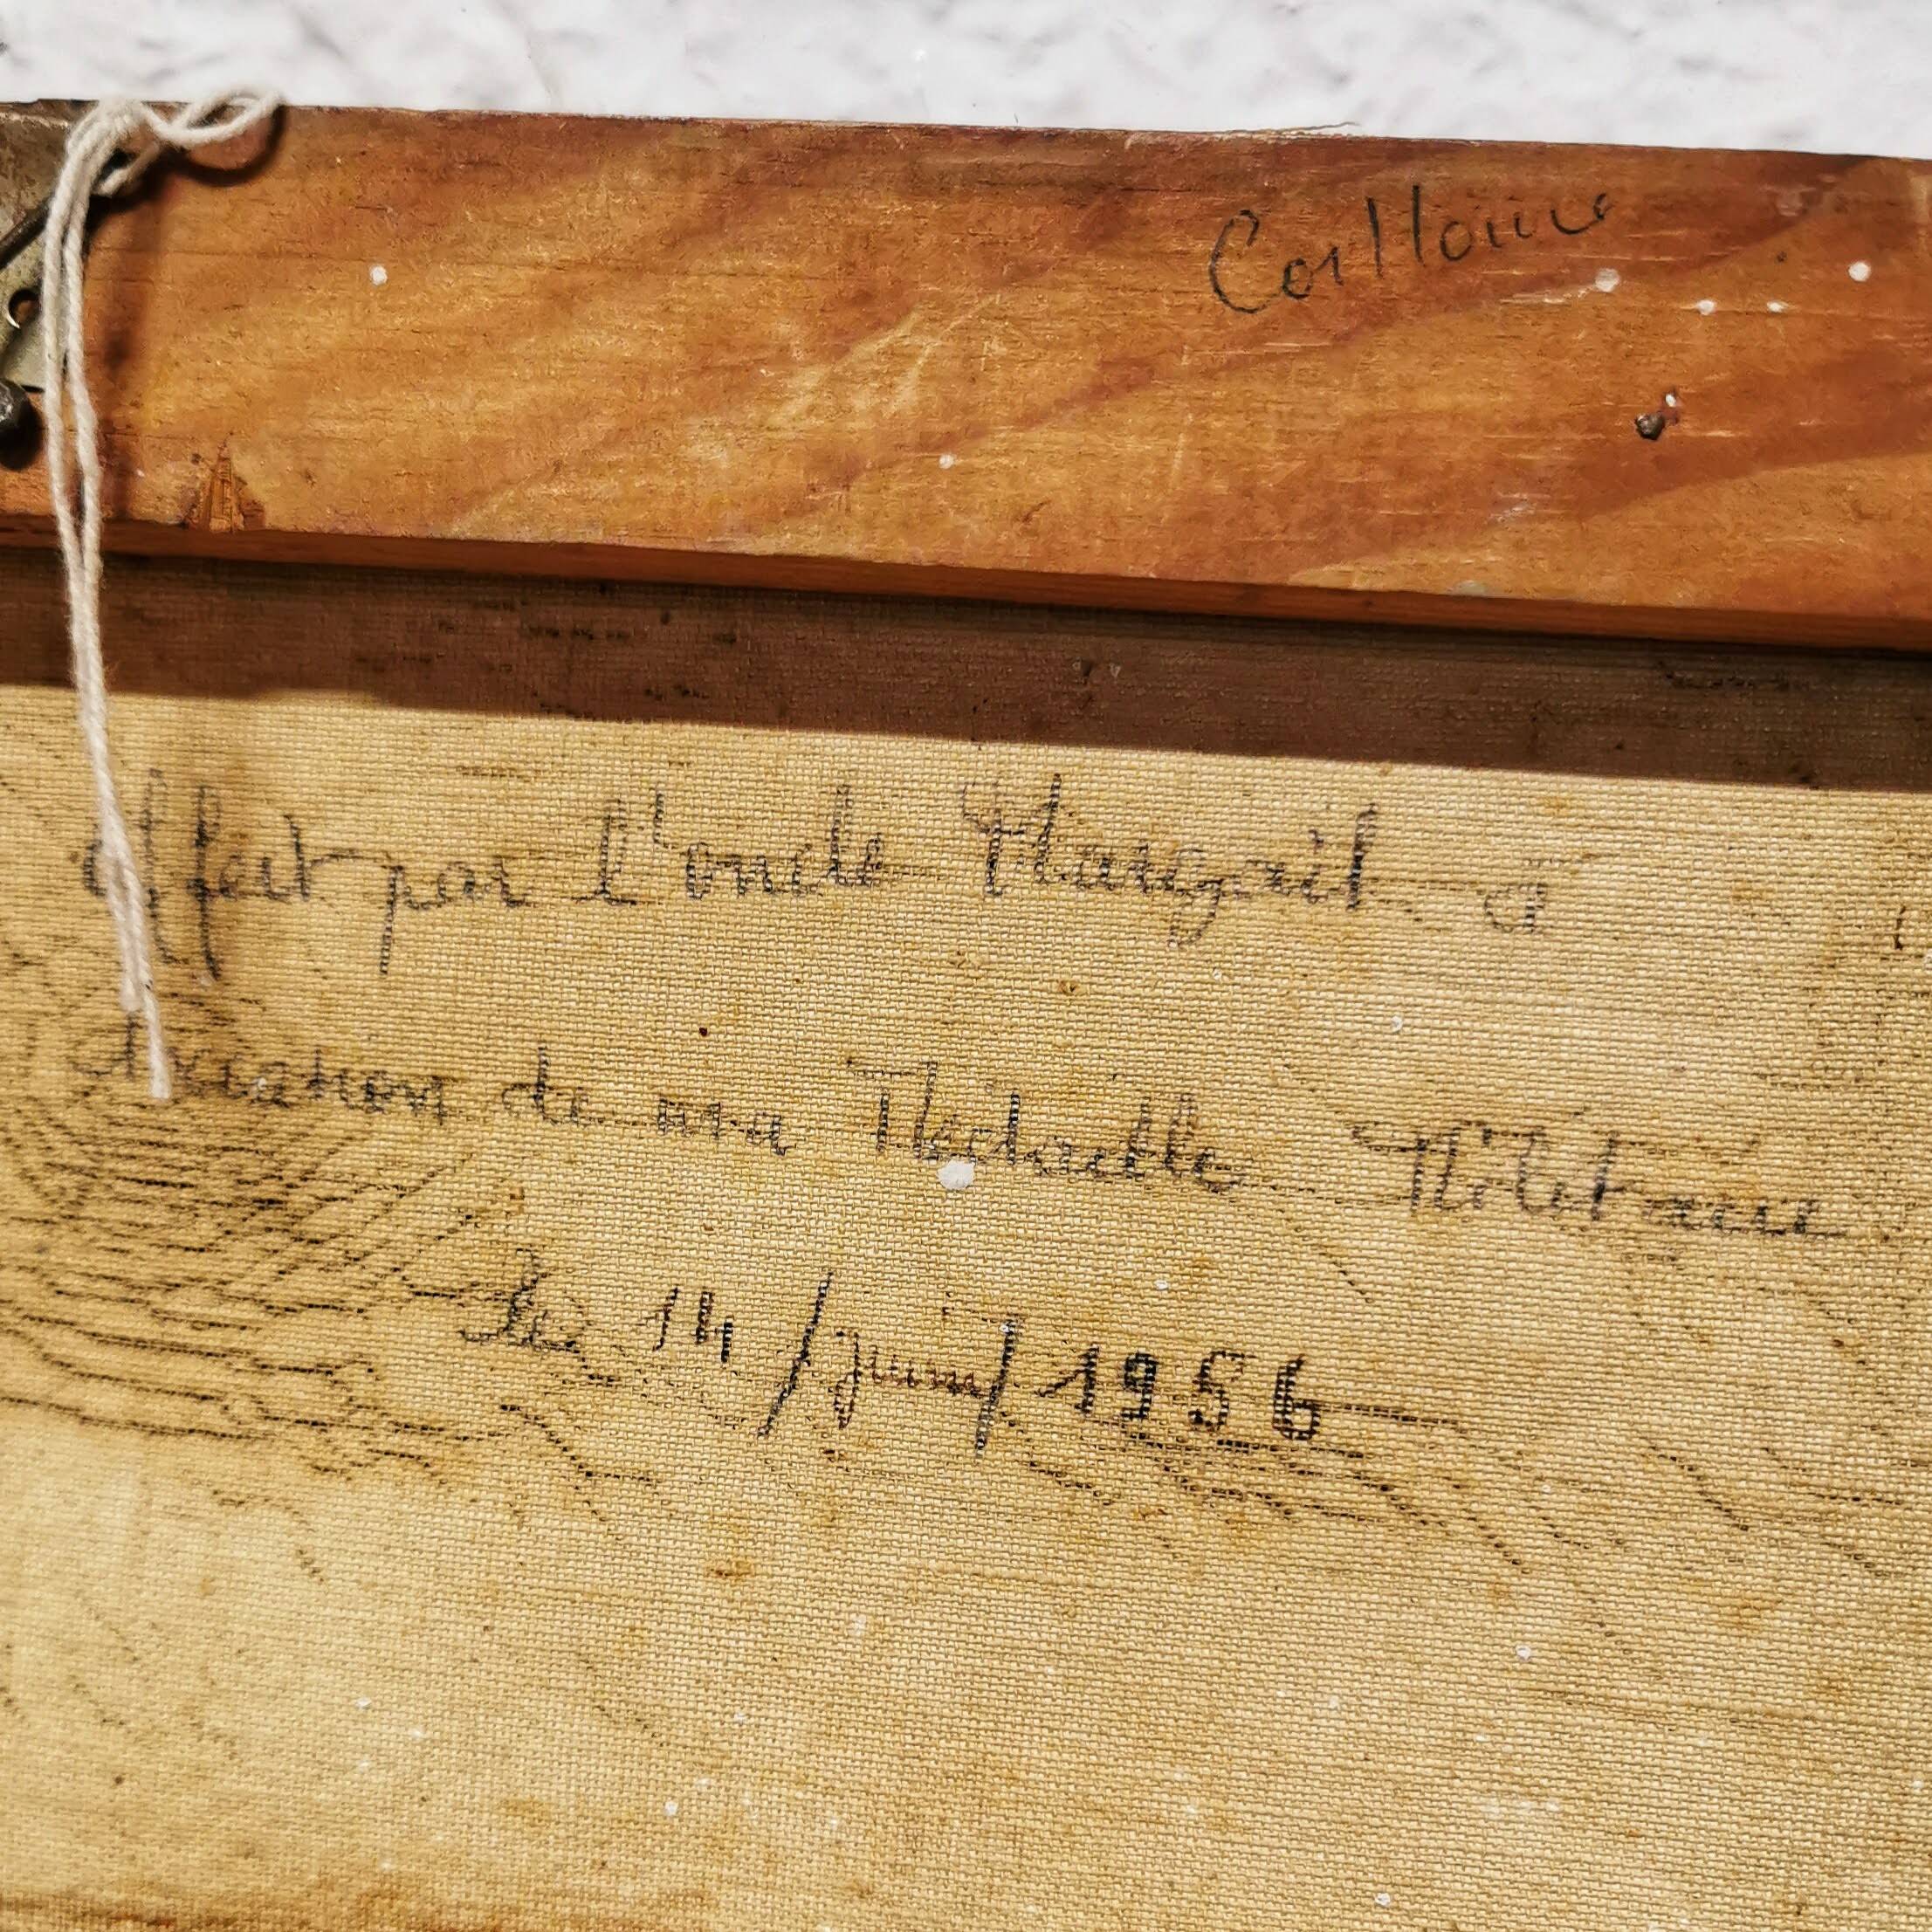 offert par l'oncle a
l'occasion de ma Médaille Militaire
le 14/juin/1956